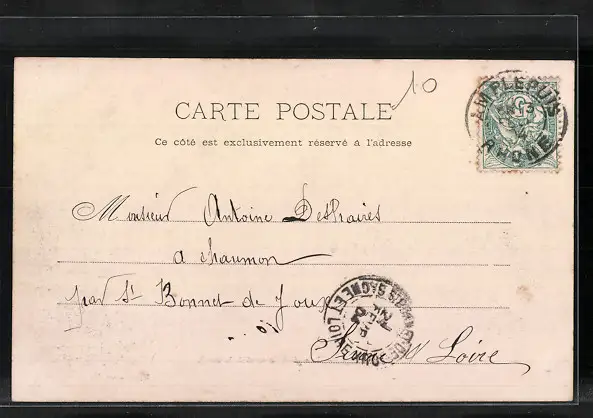 10
CARTE POSTALE
Ce côté est exclusivement réservé à l'adresse
AMPLEPUIS
RHONE
Monsieur Antoine Deshaires
a chaumon
par St Bonnet de Joux
Saone et Loire
SAONE ET LOIRE